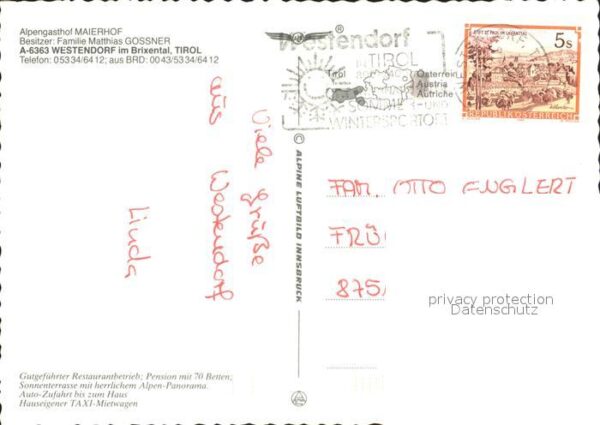 Alpengasthof MAIERHOF
Besitzer: Familie Matthias GOSSNER
A-6363 WESTENDORF im Brixental, TIROL
Telefon: 05334/6412; aus BRD: 0043/5334/6412
Westendorf
IN TIROL
Tirol
Österreich
Austria
Autriche
WINTERSPORTORT
STIFT ST. PAUL IM LAVANTTAL
5s
REPUBLIK ÖSTERREICH
Viele Grüße
aus
Westendorf
Linda
© ALPINE LUFTBILD INNSBRUCK
FAM. OTTO ENGLERT
FRÜ
875
privacy protection
Datenschutz
Gutgeführter Restaurantbetrieb; Pension mit 70 Betten;
Sonnenterrasse mit herrlickem Alpen-Panorama.
Auto-Zufahrt bis zum Haus
Hauseigener TAXI-Mietwagen